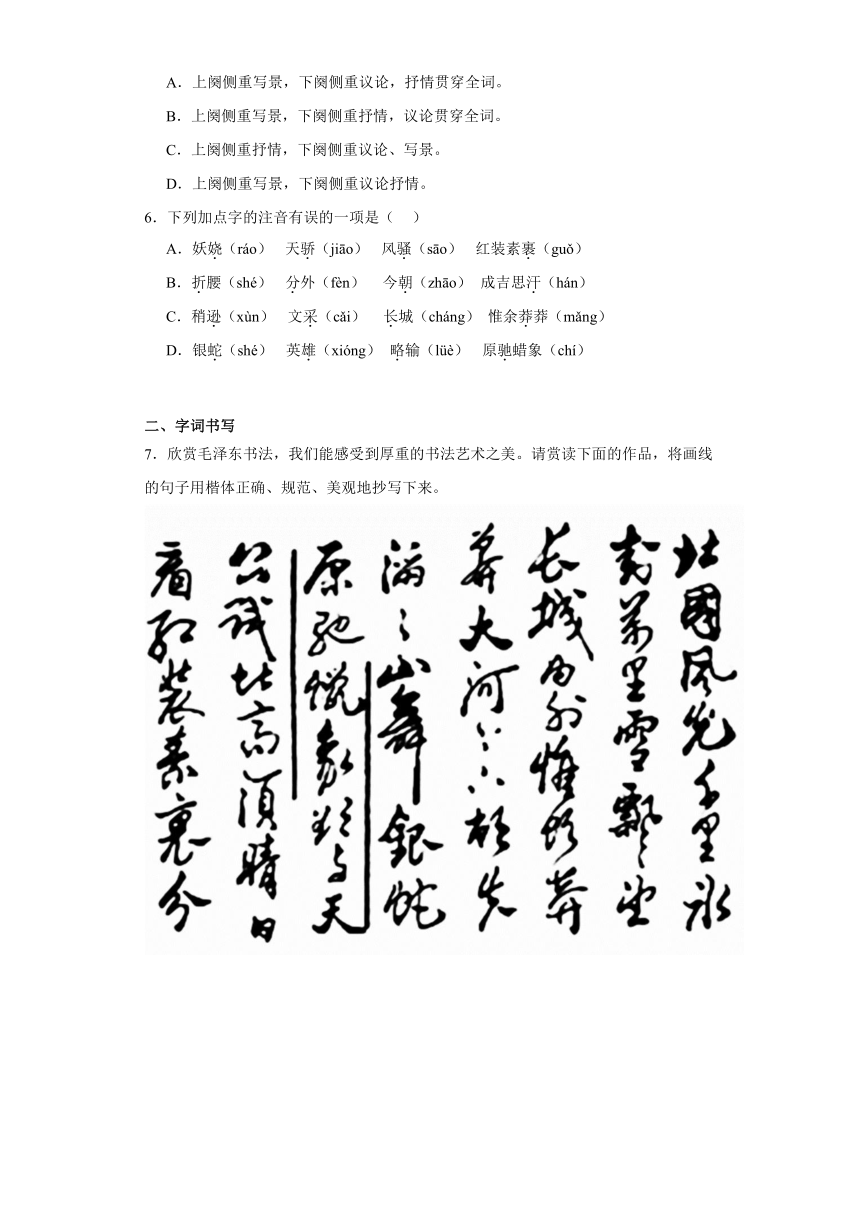 A．上阕侧重写景，下阕侧重议论，抒情贯穿全词。
B．上阕侧重写景，下阕侧重抒情，议论贯穿全词。
C．上阕侧重抒情，下阕侧重议论、写景。
D．上阕侧重写景，下阕侧重议论抒情。
6．下列加点字的注音有误的一项是（ ）
A．妖娆（ráo） 天骄（jiāo） 风骚（sāo） 红装素裹（guǒ）
B．折腰（shé） 分外（fèn） 今朝（zhāo） 成吉思汗（hán）
C．稍逊（xùn） 文采（cǎi） 长城（cháng） 惟余莽莽（mǎng）
D．银蛇（shé） 英雄（xióng） 略输（lüè） 原驰蜡象（chí）
二、字词书写
7．欣赏毛泽东书法，我们能感受到厚重的书法艺术之美。请赏读下面的作品，将画线
的句子用楷体正确、规范、美观地抄写下来。
北國风光千里冰
封萬里雪飘〻望
长城内外惟馀莽
莽大河上下顿失
滔〻山舞銀蛇
原驰蠟象欲与天
公试比高须晴日
看红装素裹分